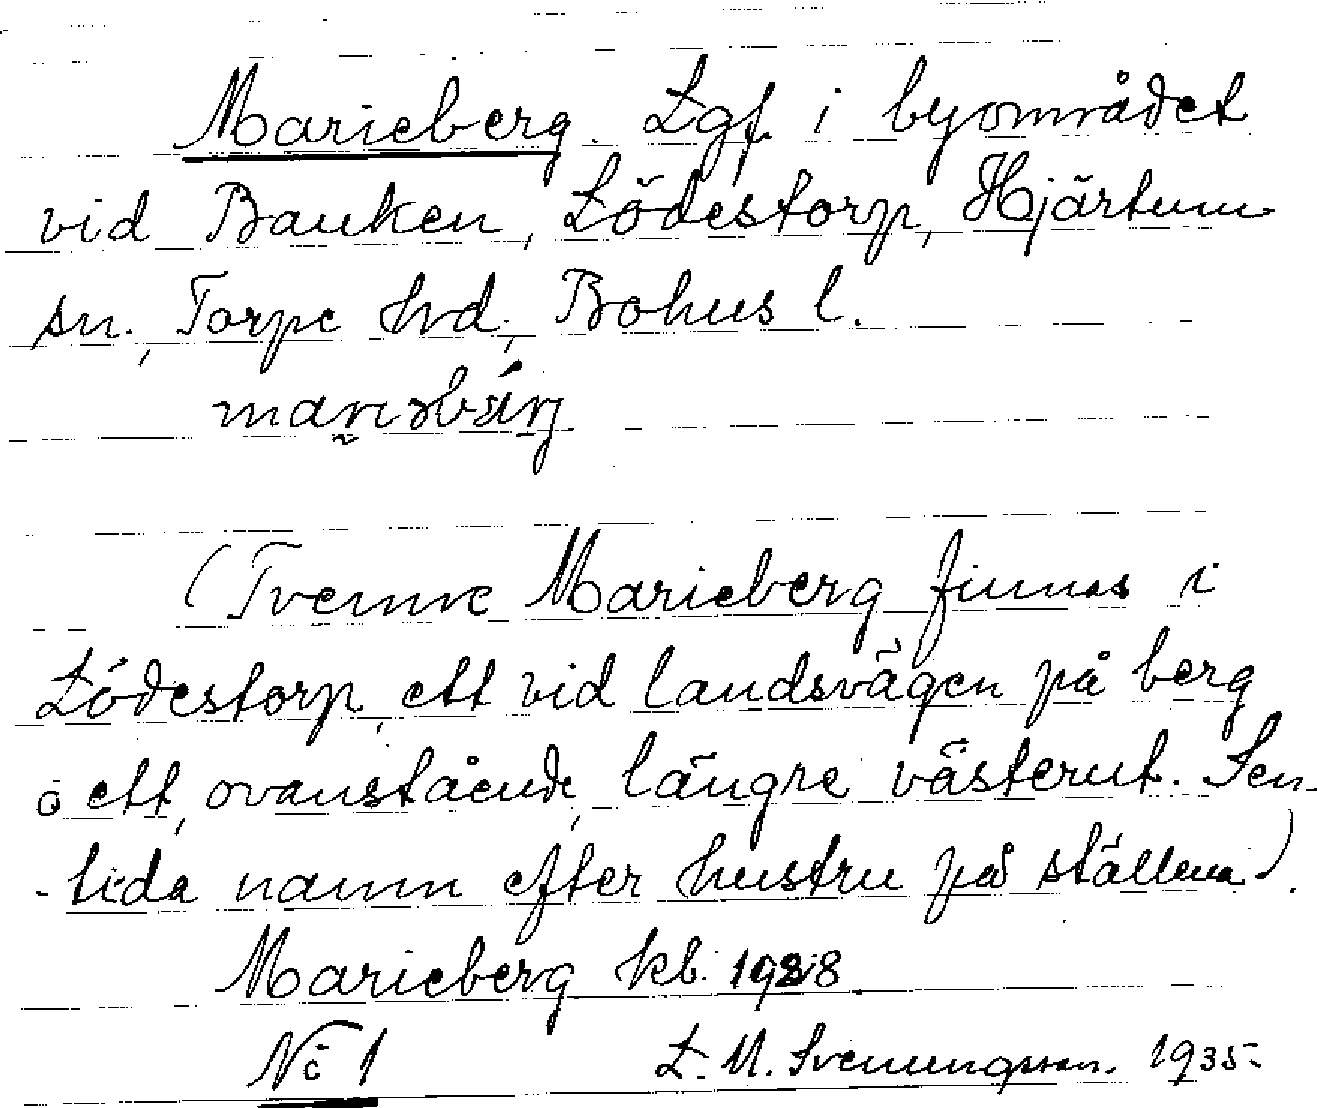 Marieberg. Lgf. i byområdet
vid Bauken, Lödestorp, Hjärtum
sn., Torpe hd, Bohus l.
(Tvenne Marieberg finnas i
Lödestorp, ett vid landsvägen på berg
o ett, ovanstående, längre västerut. Sen-
-tida namn efter hustru på ställena).
Marieberg kb. 1928
No 1 L. M. Svenungsson. 1935.